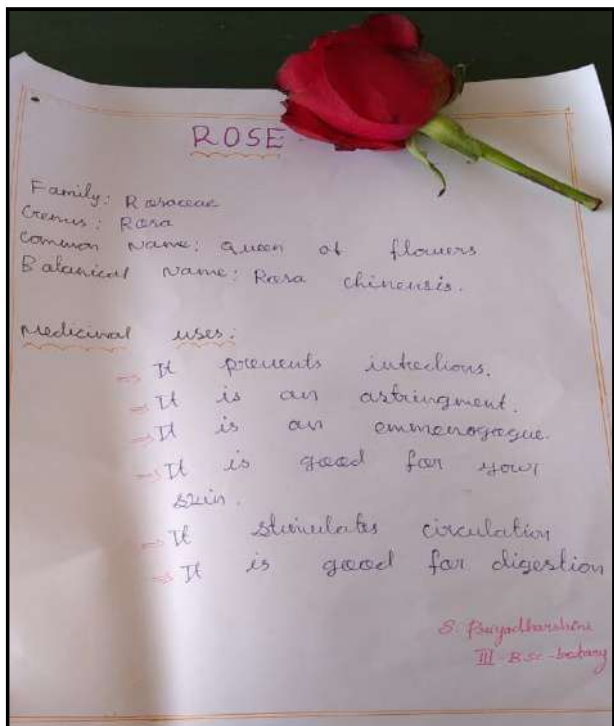 ROSE
Family: Rosaceae
Genus: Rosa
Common Name: Queen of flowers
Botanical Name: Rosa chinensis.
Medicinal uses:
⇒ It prevents infections.
⇒ It is an astringment.
⇒ It is an emmenogogue.
⇒ It is good for your
skin.
⇒ It stimulates circulation
⇒ It is good for digestion
S. Priyadharshini
III B.Sc. botany